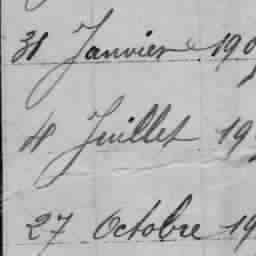 31 Janvier 190
4 Juillet 19
27 Octobre 19